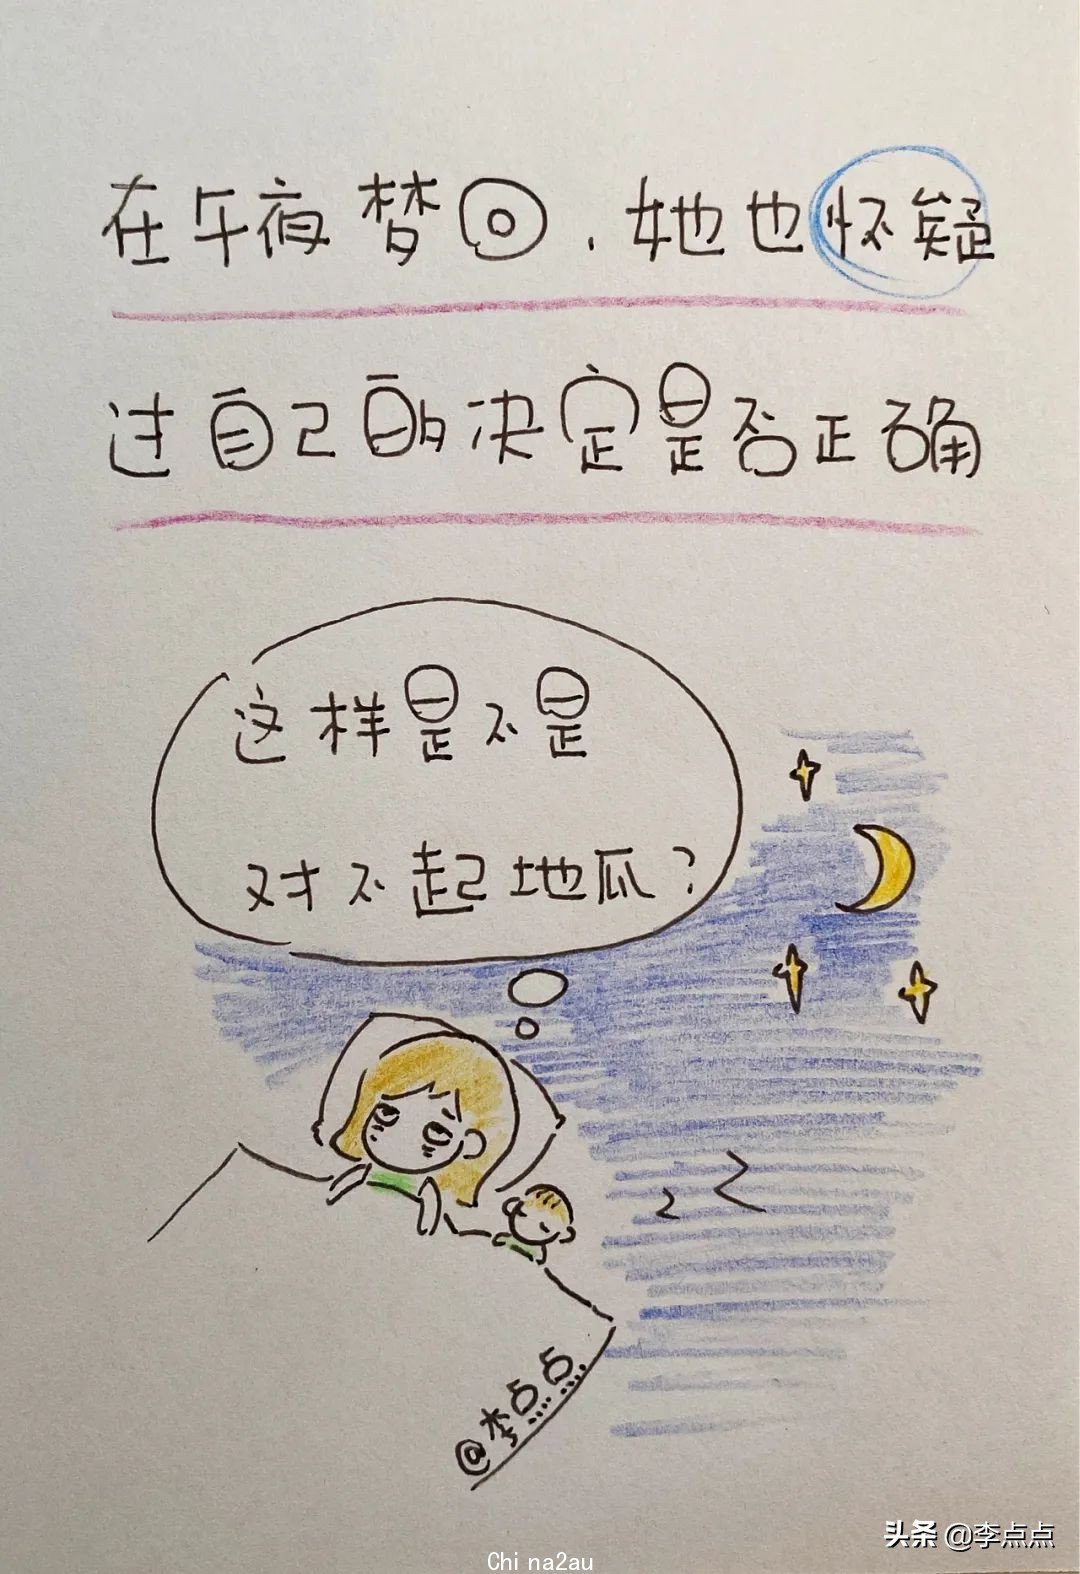 在午夜梦回，她也怀疑
过自己的决定是否正确
这样是不是
对不起地瓜？
@李点点
头条 @李点点
Chi na2au